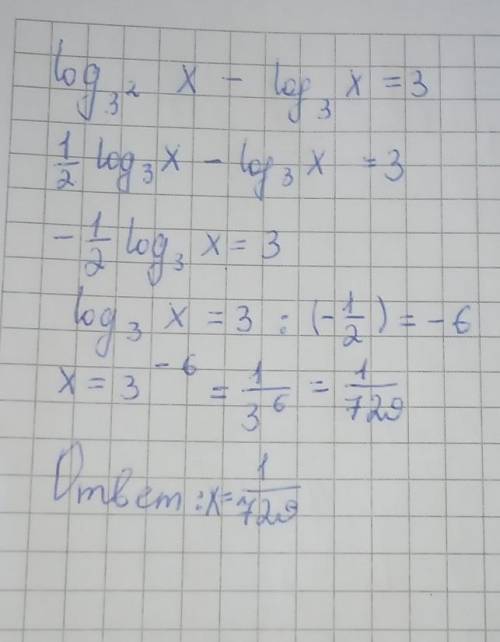 log_{3^2} x - log_3 x = 3
1/2 log_3 x - log_3 x = 3
- 1/2 log_3 x = 3
log_3 x = 3 : (-1/2) = -6
x = 3^{-6} = 1/3^6 = 1/729
Ответ: x = 1/729